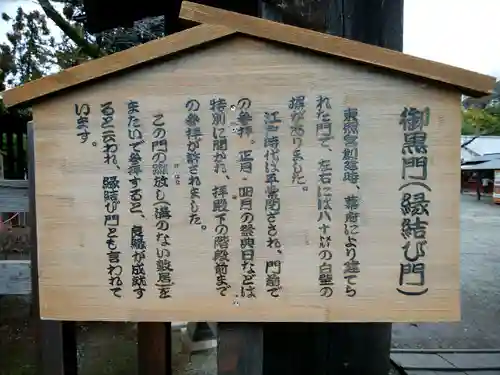 御黒門(縁結び門)
東照宮創建時、幕府により建て
られた門で、左右には八十㍍の白壁の
塀がありました。
江戸時代は平常閉ざされ、門前で
の参拝。正月、四月の祭典日などは
特別に開かれ、拝殿下の階段前まで
の参拝が許されました。
この門の蹴放し(溝のない敷居)を
けはな
またいで参拝すると、良縁が成就す
ると云われ、縁結び門とも言われて
います。